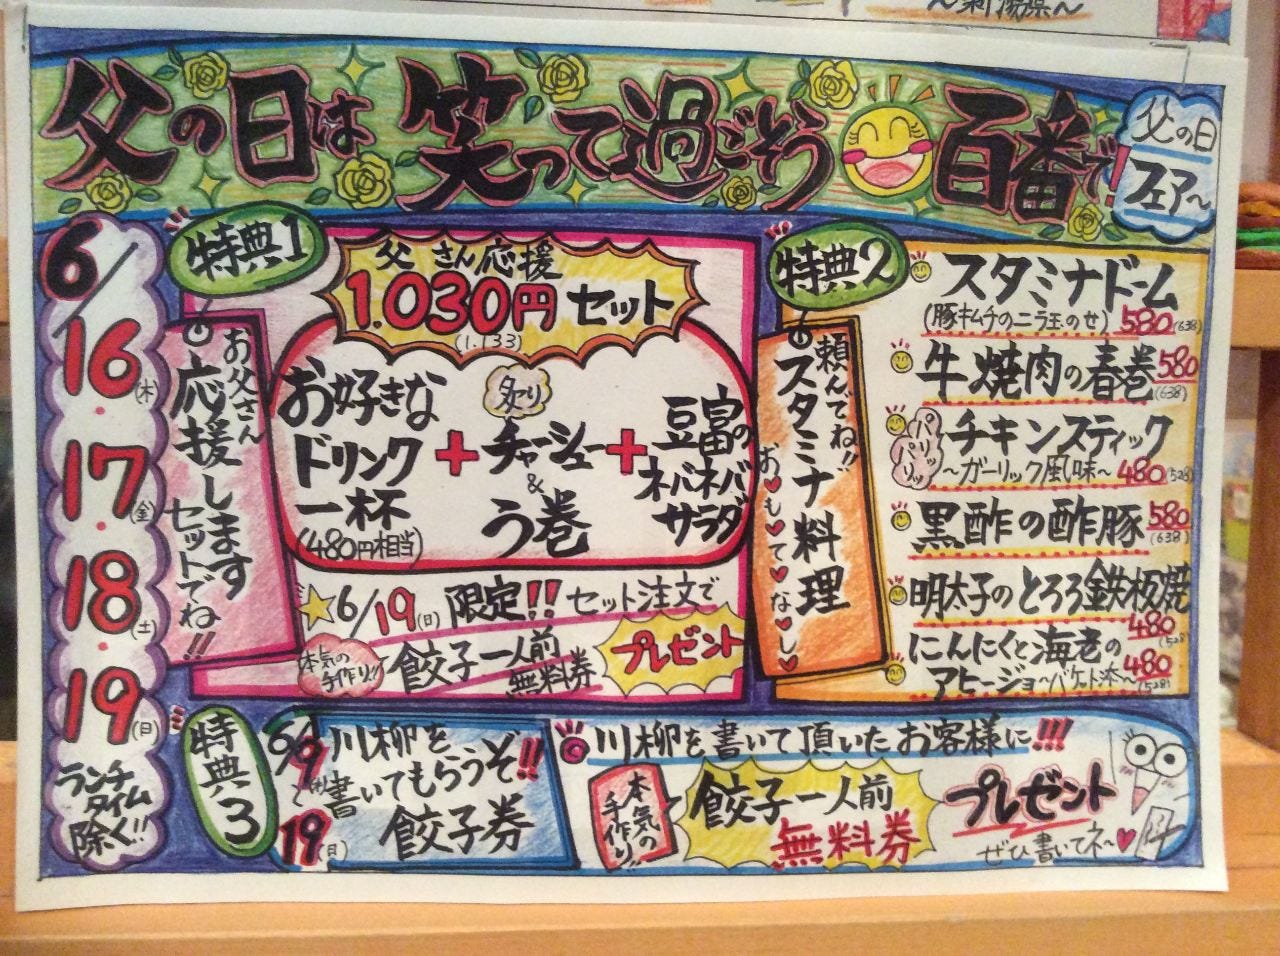 父の日は笑って過ごそう百番で!
父の日
フェア〜
6/
16(木)
・
17(金)
・
18(土)
・
19(日)
ランチ
タイム
除く!!
特典1
お父さん
応援します
セットでね!!
父さん応援
1.030円セット
(1.133)
お好きな
ドリンク
一杯
(480円相当)
+
炙り
チャーシュー
&
う巻
+
豆富の
ネバネバ
サラダ
6/19(日)限定!!セット注文で
本気の
手作り!!
餃子一人前
無料券
プレゼント
特典2
頼んでね!!
スタミナ料理
おもてなし
スタミナドーム
(豚キムチのニラ玉のせ) 580(638)
牛焼肉の春巻580
(638)
パリパリッ
チキンスティック
〜ガーリック風味〜480(528)
黒酢の酢豚580
(638)
明太子のとろろ鉄板焼
480
(528)
にんにくと海老の
アヒージョ〜バケット添〜480
(528)
特典3
6/9(木)
と
19(日)
川柳を
書いてもらうぞ!!
餃子券
川柳を書いて頂いたお客様に!!!
本気の
手作り!!
餃子一人前
無料券
プレゼント
ぜひ書いてネ〜